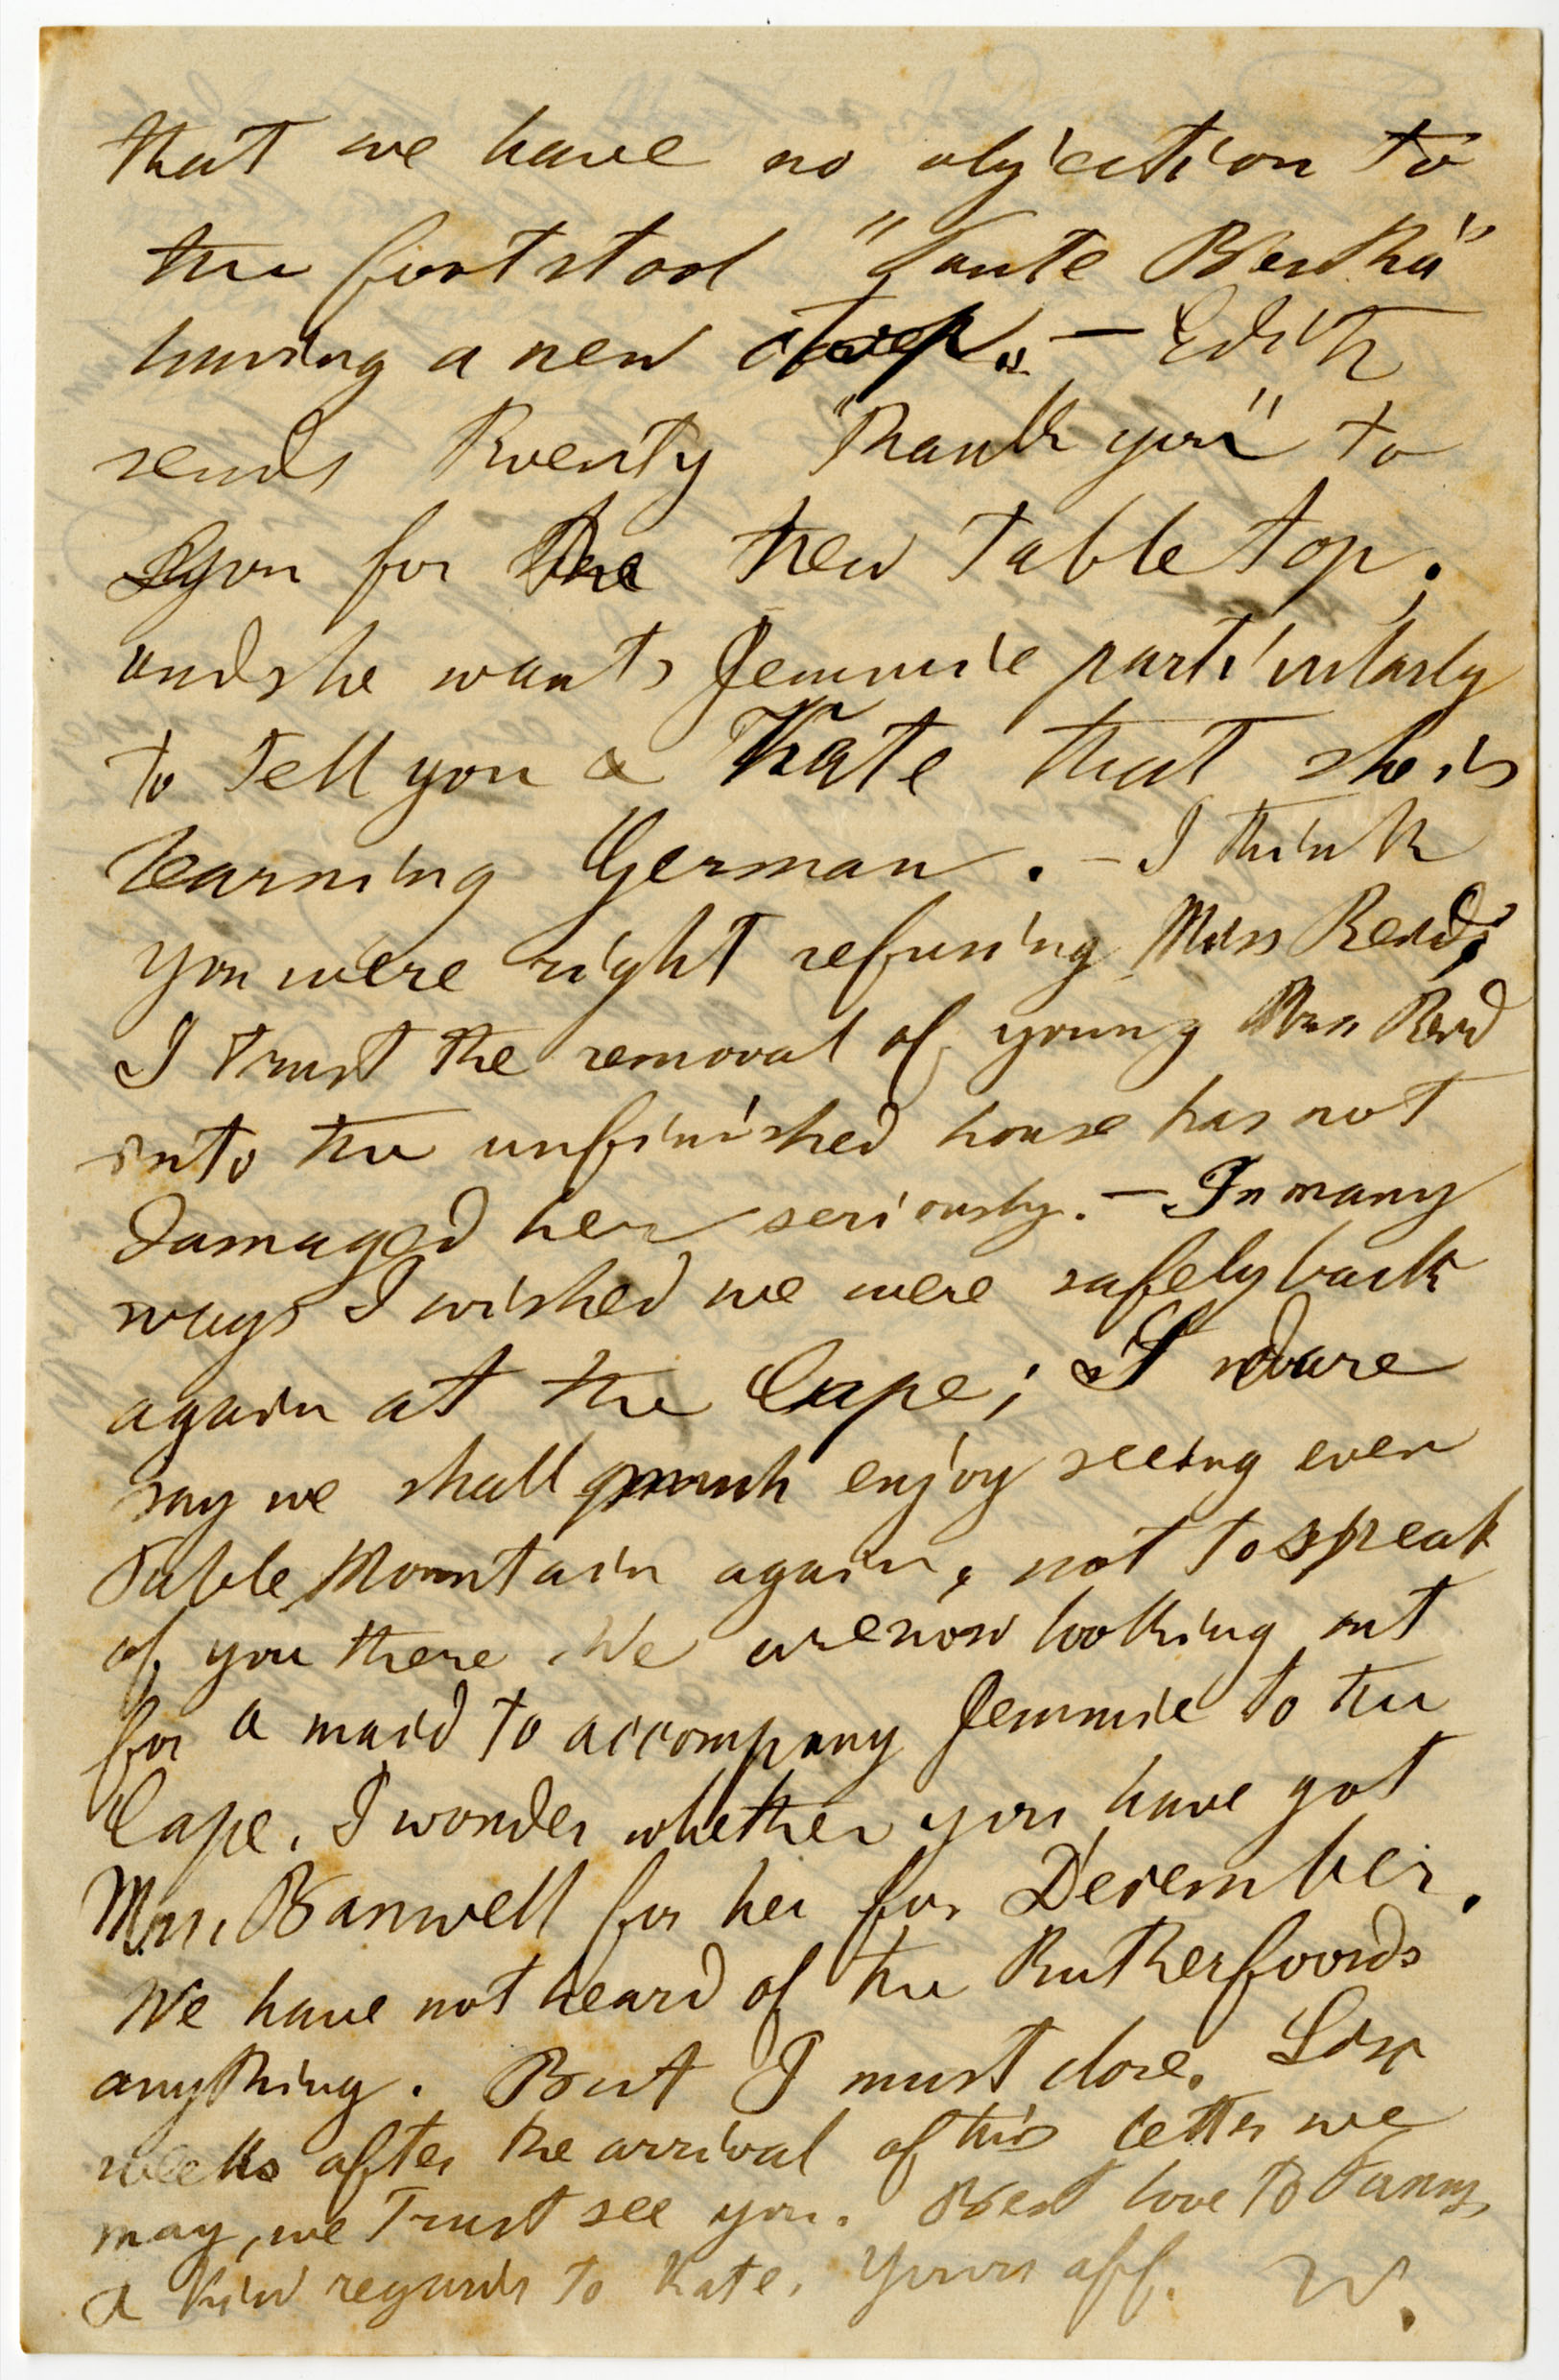 that we have no objection to
the footstool "Tante Bertha"
having a new cover. — Edith
sends twenty "Thank you" to
you for the new table top,
and she wants Jemmie particularly
to tell you & Kate that she is
learning German. — I think
you were right refusing Miss Read;
I trust the removal of young Mrs Read
into the unfinished house has not
damaged her seriously. — In many
ways I wished we were safely back
again at the Cape; & I dare
say we shall much enjoy seeing even
Table Mountain again, not to speak
of you there. We are now looking out
for a maid to accompany Jemmie to the
Cape. I wonder whether you have got
Mrs. Banwell for her for December.
We have not heard of the Rutherfoords
anything. But I must close. Six
weeks after the arrival of this letter we
may, we trust see you. Best love to Fanny
& kind regards to Kate. Yours aff. W.